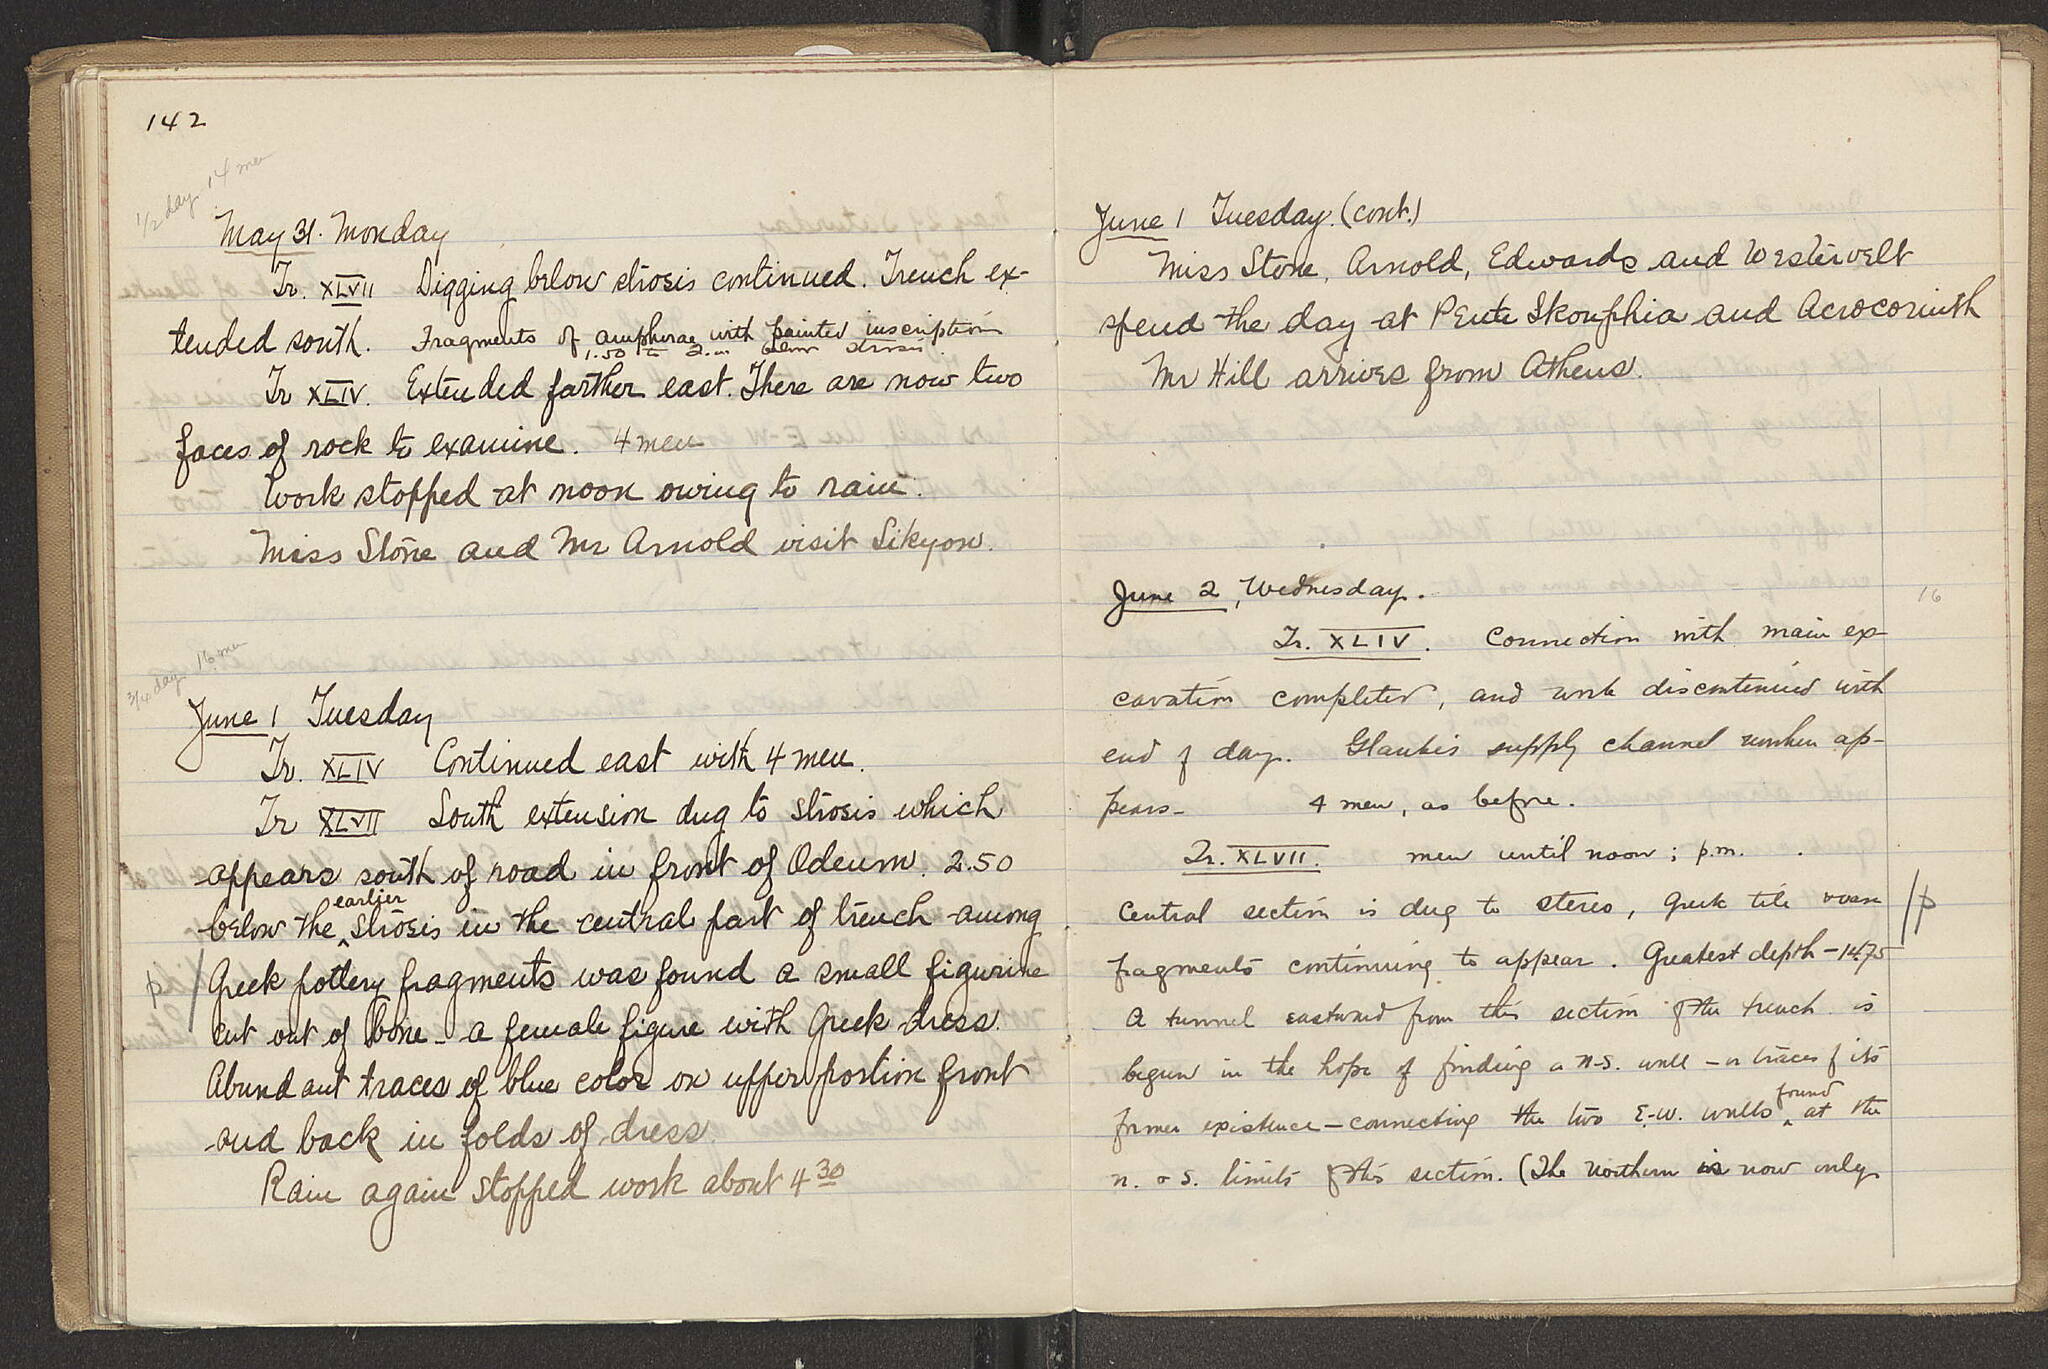 142
1/2 day 14 men
May 31. Monday
Tr. XLVII Digging below strosis continued. Trench ex-
tended south. Fragments of amphorae with painted inscription
1.50 to 2.m below strosis.
Tr XLIV. Extended farther east. There are now two
faces of rock to examine. 4 men
Work stopped at noon owing to rain.
Miss Stone and Mr Arnold visit Sikyon.
3/4 day 16 men
June 1 Tuesday
Tr. XLIV Continued east with 4 men.
Tr XLVII South extension dug to strosis which
appears south of road in front of Odeum. 2.50
earlier
below the ^ strosis in the central part of trench among
p / Greek pottery fragments was found a small figurine
cut out of bone - a female figure with Greek dress.
Abundant traces of blue color on upper portion front
and back in folds of dress.
Rain again stopped work about 4 30
June 1 Tuesday. (cont.)
Miss Stone, Arnold, Edwards and Westervelt
spend the day at Pente Skouphia and Acrocorinth
Mr Hill arrives from Athens.
June 2, Wednesday.
16
Tr. XLIV. Connection with main ex-
cavation completed, and work discontinued with
end of day. Glauke's supply channel uncken ap-
pears- 4 men, as before.
Tr. XLVII. men until noon; p.m. .
Central section is dug to stereo, Greek tile & vase // p
fragments continuing to appear. Greatest depth - 14.75
A tunnel eastward from this section of the trench is
begun in the hope of finding a N-S. wall - or traces of its
found
former existence - connecting the two E-W. walls ^ at the
n. & s. limits of this section. (The northern is now only